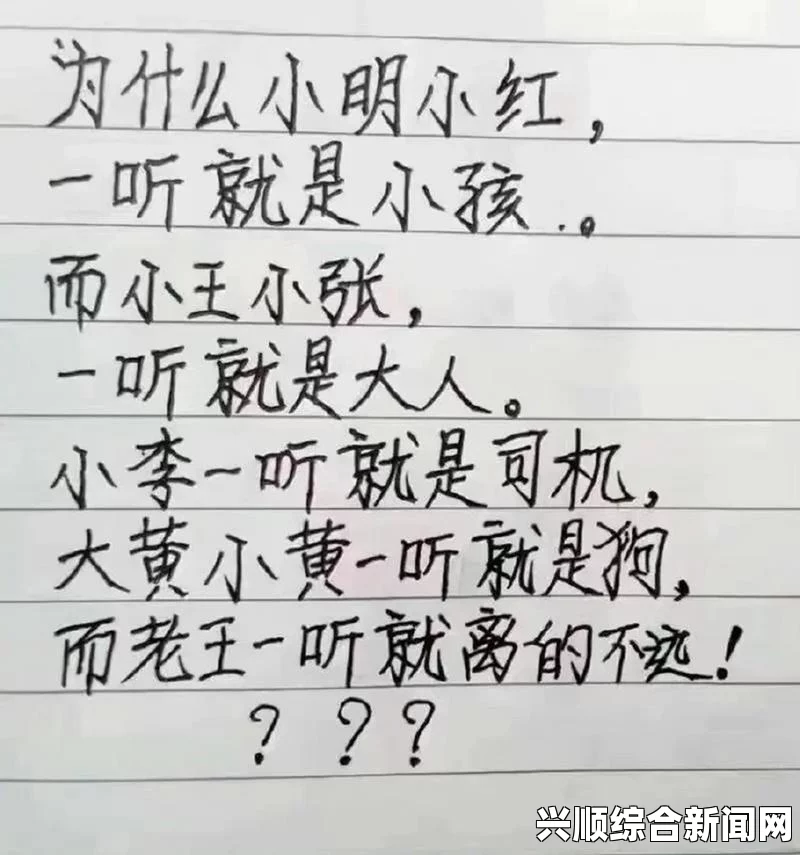 为什么小明小红，
一听就是小孩.。
而小王小张，
一听就是大人。
小李一听就是司机，
大黄小黄一听就是狗，
而老王一听就离的不远！
？？？
兴顺综合新闻网